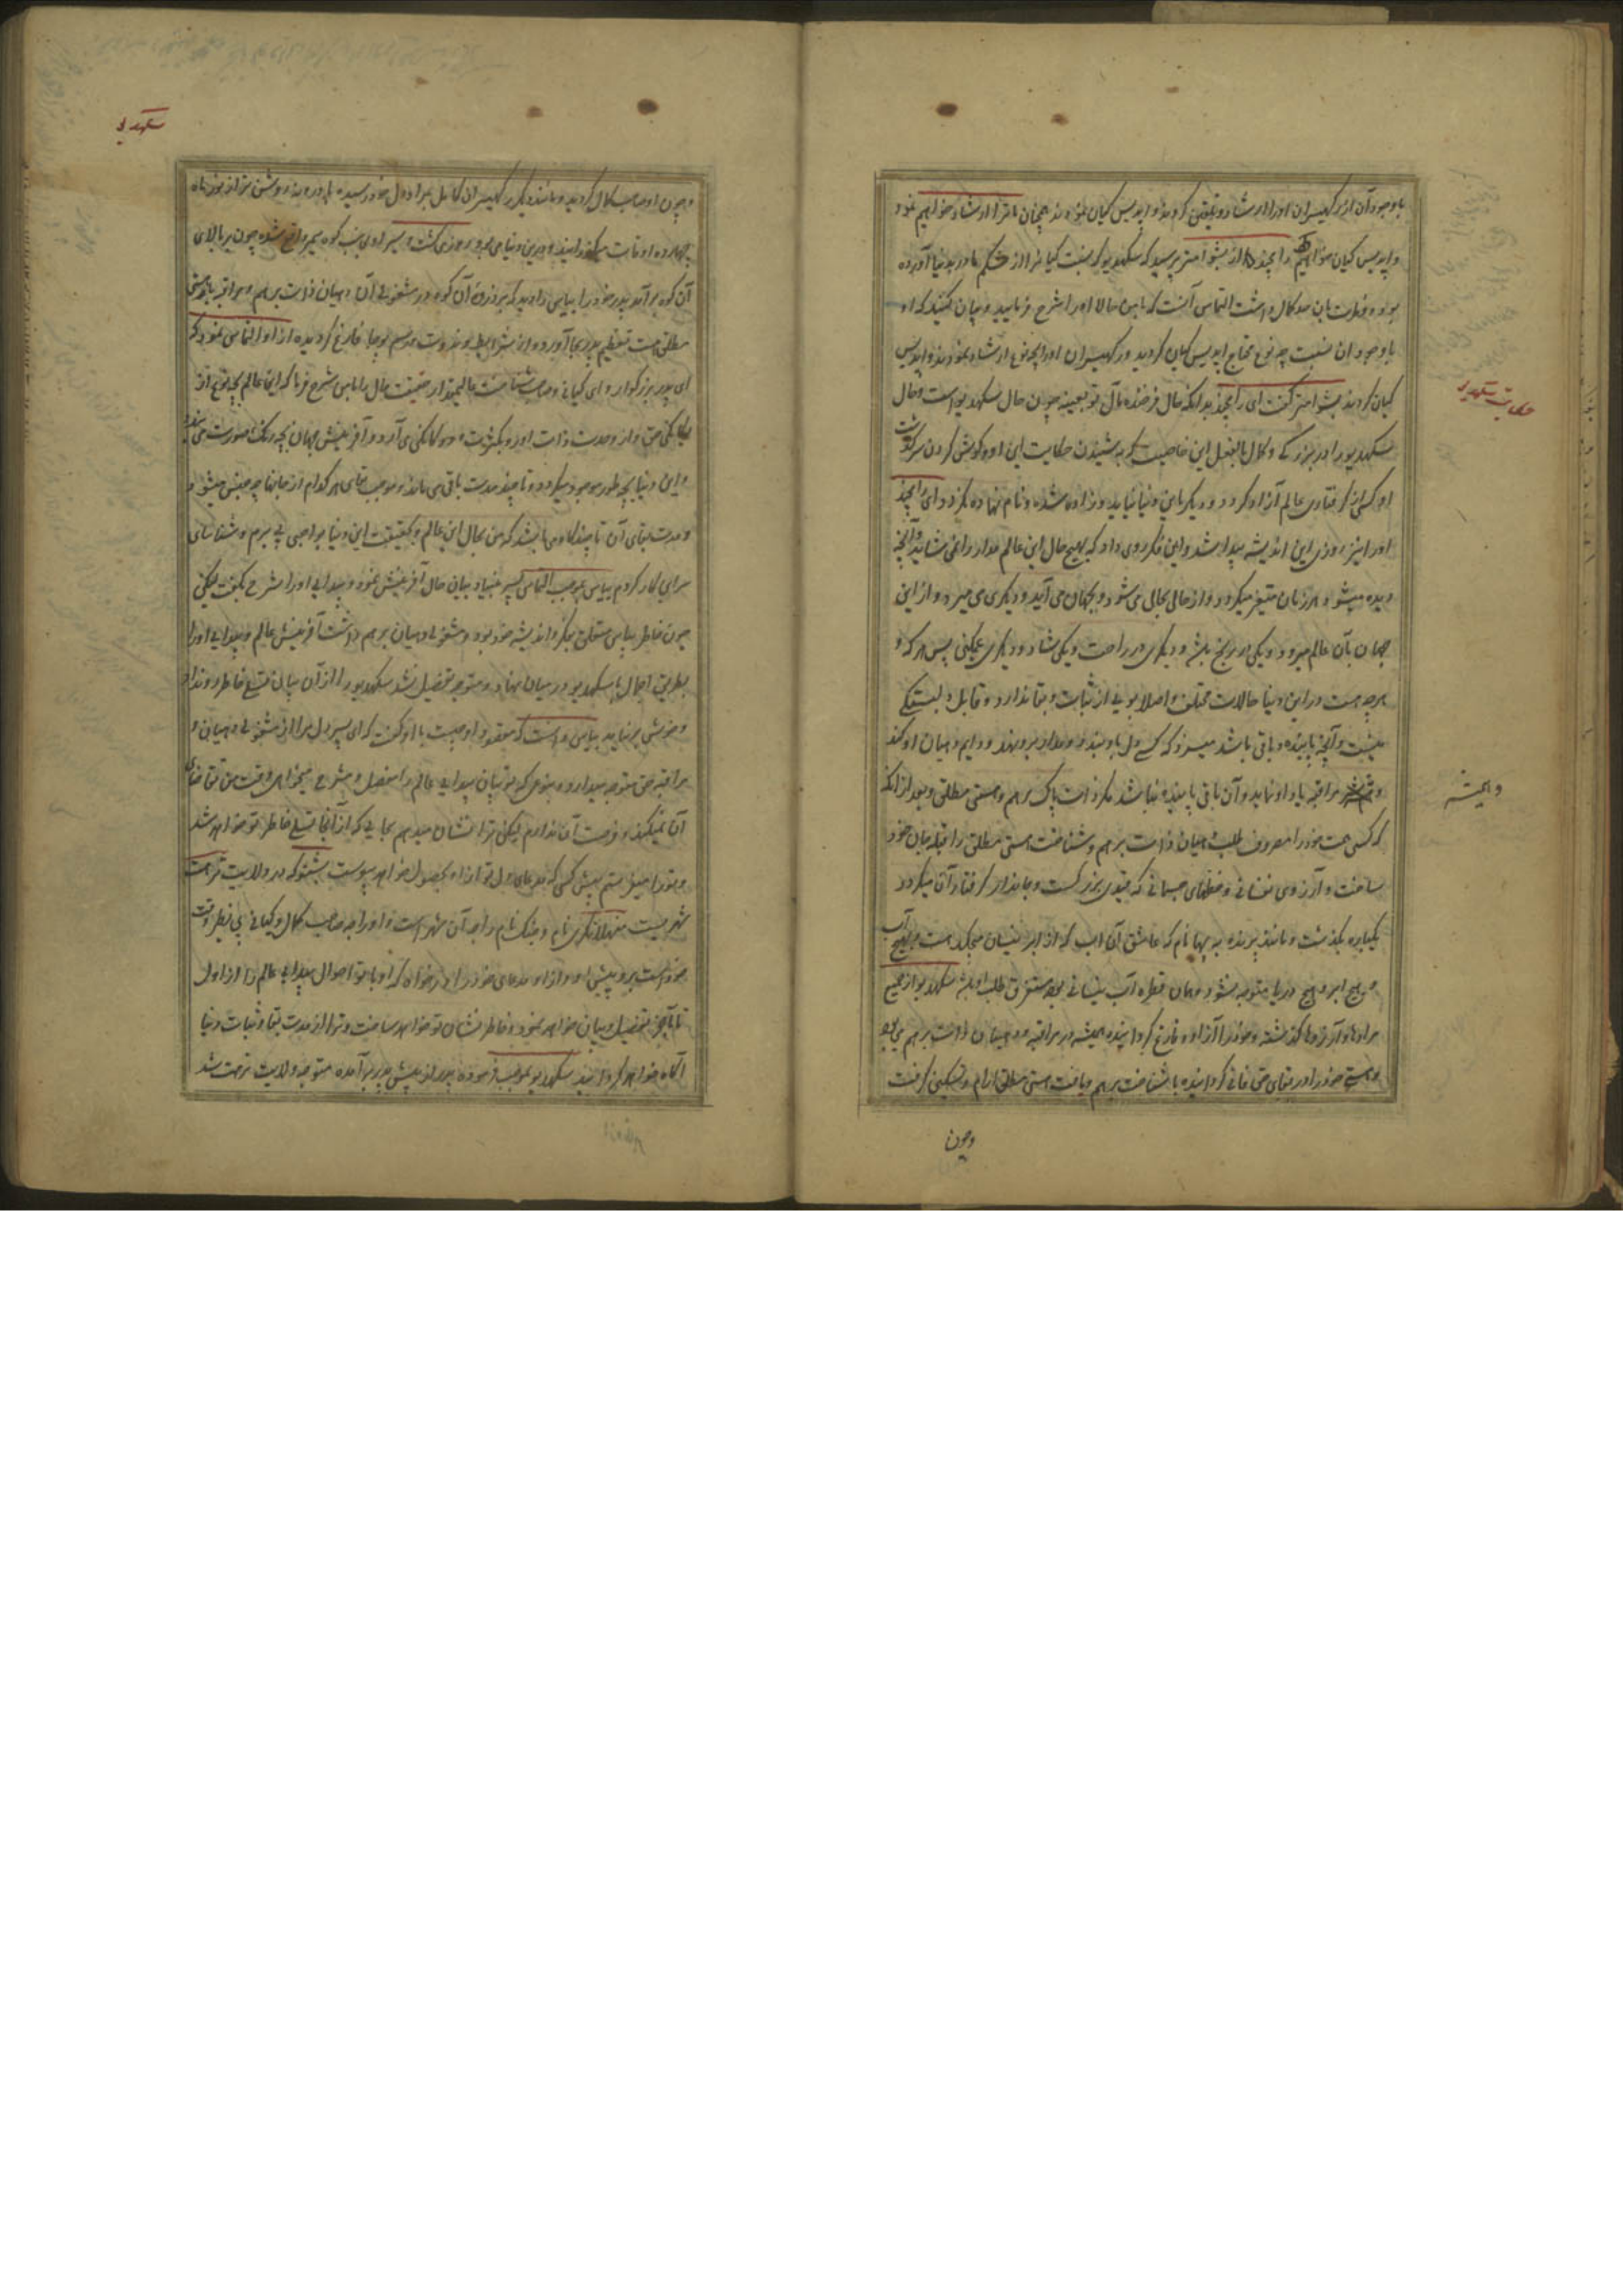 باوجود آن از رکهیسران اورا ارشاد و تلقین کردند و اپدیس کیان نمودند همچنان ما ترا ارشاد خواهیم نمود
و اپدیس کیان خواهیم رامچند از بشوامتر پرسید که سکهدیو که نسبت کیان را از شکم مادر بدنیا آورده
بود و فطرت بان صد کمال داشت التماس آنست که بامن حالا اورا شرح فرمایید و بیان کنید که او
باوجود ان نسبت چه نوع محتاج اپدیس کیان گردید و رکهیسران اورا چه نوع ارشاد نمودند و اپدیس
کیان کردند بشوامتر گفت ای رامچند بدانکه حال فرخنده مآل تو بعینه چون حال سکهدیو است و حال
سکهدیو را در بزرگی و کمال بالفعل این خاصیت که به شنیدن حکایت این او و گوش کردن سرگذشت
او کسی از گرفتاری عالم آزاد گردد و دیگر باین دنیا نیاید و زاده نشده و نام نهاده نگردد ای رامچند
اورا نیز روزی این اندیشه پیدا شد و این فکر روی داد که بهیچ حال این عالم مدار را نمی شاید و آنچه
دیده میشود هر زمان متغیر میگردد و از حالی بحالی می شود و یکی بجهان می آید و دیگری می میرد و از این
جهان بآن عالم میرود و یکی در رنج باشد و دیگری در راحت و یکی شاد و دیگری غمگین پس هر که و
هر چه هست در این دنیا حالات مختلف و اصلا بویی از ثبات و بقا ندارد و قابل دلبستگی
نیست و آنچه پاینده و باقی باشد میسزد که کسی دل باو بندد و مدار برو نهد و دایم دهیان او کند
و مراقبه یاد او نماید و آن باقی پاینده نباشد مگر ذات پاک برهم و هستی مطلق و بعد از آنکه
که کسی همت خود را مصروف طلب دهیان ذات برهم و شناخت هستی مطلق را قبله جان خود
ساخت و آرزوی نفسانی و حظهای جسمانی که قیدی بزرگست و جاندار گرفتار آن میگردد
یکباره بگذشت و مانند پرنده پپیها نام که عاشق آن آب که از ابر نیسان میچکد است و بهیچ آب
و هیچ ابر و هیچ دریا متوجه نشود و همان قطره آب نیسانی بود مستغرق طلب او باشد سکهدیو از جمیع
مرادها و آرزوها گذشته و خود را آزاد و فارغ گردانیده همیشه در مراقبه و دهیان ذات برهم می بود
و هستی خود را در بقای حق فانی گردانیده با شناخت برهم و یافت هستی مطلق آرام و تسکین گرفت
وچون
حکایت سکهدیو
وهمیشه
سکهدیو
وچون او صاحب کمال گردید و مانند دیگر رکهیسران کامل بمراد دل خود رسیده
چهره ده اوقات میگذرانید و درین دنیا می بود روزی گشت و سیر او بجانب کوه سمیر واقع شده چون بر بالای
آن کوه برآمد پدر خود را بیاس را دید که بر ذروه آن کوه در مشغولی آن دهیان ذات برهم و مراقبه یاد هستی
مطلق است تعظیم پدر بجا آورد و از شرایط دندوت و رسم پوجا فارغ گردیده از او التماس نمود که
ای پدر بزرگوار و ای گیانی و صاحب شناخت عالیمقدار حقیقت حال را بامن شرح فرما که این عالم بچه نوع از
یگانگی حق و از وحدت ذات او رو بکثرت و دوگانگی می آرد و آفرینش جهان بچه رنگ صورت می بندد
و این دنیا بچه طور موجود میگردد و تا چند مدت باقی می ماند و موجب بقای هر کدام از جانها چه
و مدت بقای آن تا چند گاه می باشد که من بحال این عالم و بحقیقت این دنیا بواجبی پی برم و شناسای
سرای کار گردم بیاس بموجب التماس پسر بنیاد بیان حال آفرینش نموده و پیدایی اورا شرح بگفت لیکن
چون خاطر بیاس متعلق بفکر و اندیشه خود بود و مشغولی دهیان برهم داشت آفرینش عالم و پیدایی اورا
بطریق اجمال با سکهدیو در میان نهاد و متوجه تفصیل نشد سکهدیو را از آن بیان تسلی خاطر رو نداد
و خوشی بر نیامد بیاس دانست که مقصود او چیست با او گفت که ای پسر دل مرا از مشغولی دهیان و
مراقبه حق متوجه میدارد و بنوعی که تو بیان پیدایی عالم را مفصل و مشرح میخواهی وقت من تقاضای
آن نمیکند و فرصت آن ندارم لیکن ترا نشان میدهم بجایی که از آنجا تسلی خاطر تو خواهد شد
و بتو میفرستم پیش کسی که مدعای دل تو ازو بحصول خواهد پیوست بشنو که در ولایت ترهت
شهریست متهلانگری نام و جنک نام راجه آن شهر است و او راجه صاحب کمال و گیانی بی نظیر وقت
خود است برو پیش او و ازو مدعای خود را درخواه که او با تو احوال پیدایی عالم را از اول
تا بآخر بتفصیل و بیان خواهد نمود و خاطر نشان تو خواهد ساخت و ترا از مدت بقا و ثبات دنیا
آگاه خواهد گردانید سکهدیو بموجب فرموده پدر از پیش پدر برآمده متوجه ولایت ترهت شد